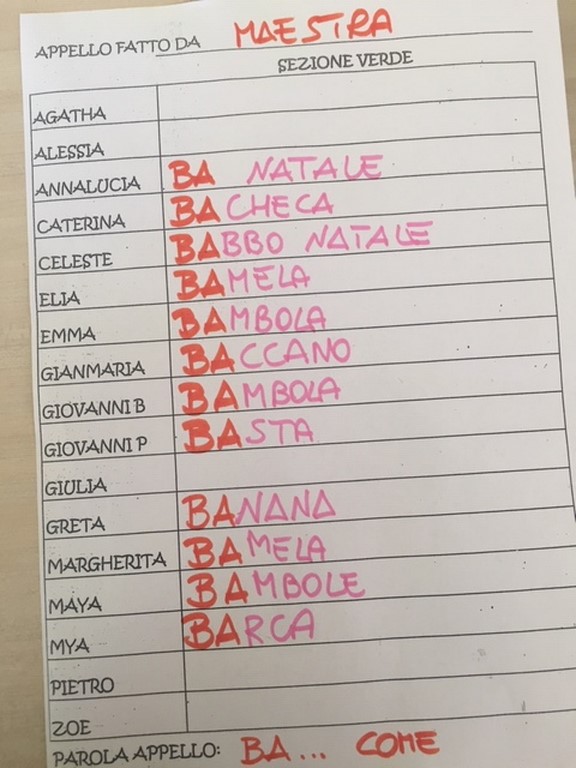 APPELLO FATTO DA MAESTRA
SEZIONE VERDE
AGATHA
ALESSIA
ANNALUCIA BA NATALE
CATERINA BACHECA
CELESTE BABBO NATALE
ELIA BAMELA
EMMA BAMBOLA
GIANMARIA BACCANO
GIOVANNI B BAMBOLA
GIOVANNI P BASTA
GIULIA
GRETA BANANA
MARGHERITA BAMELA
MAYA BAMBOLE
MYA BARCA
PIETRO
ZOE
PAROLA APPELLO: BA... COME